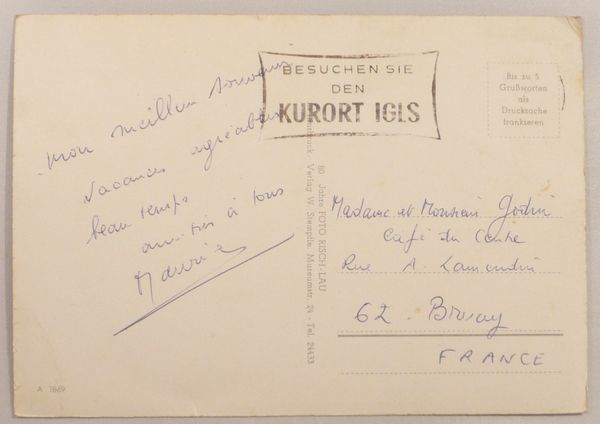 mon meilleur souvenir
Vacances agréables
beau temps
amitiés à tous
Maurice
BESUCHEN SIE
DEN
KURORT IGLS
Bis zu 5
Grußworten
als
Drucksache
frankieren
80 Jahre FOTO RISCH-LAU
Verlag W. Stempfle, Museumstr. 24 - Tel. 24433
Madame et Monsieur
Café du Centre
Rue A. Lamendin
62. Bruay
FRANCE
A 1869